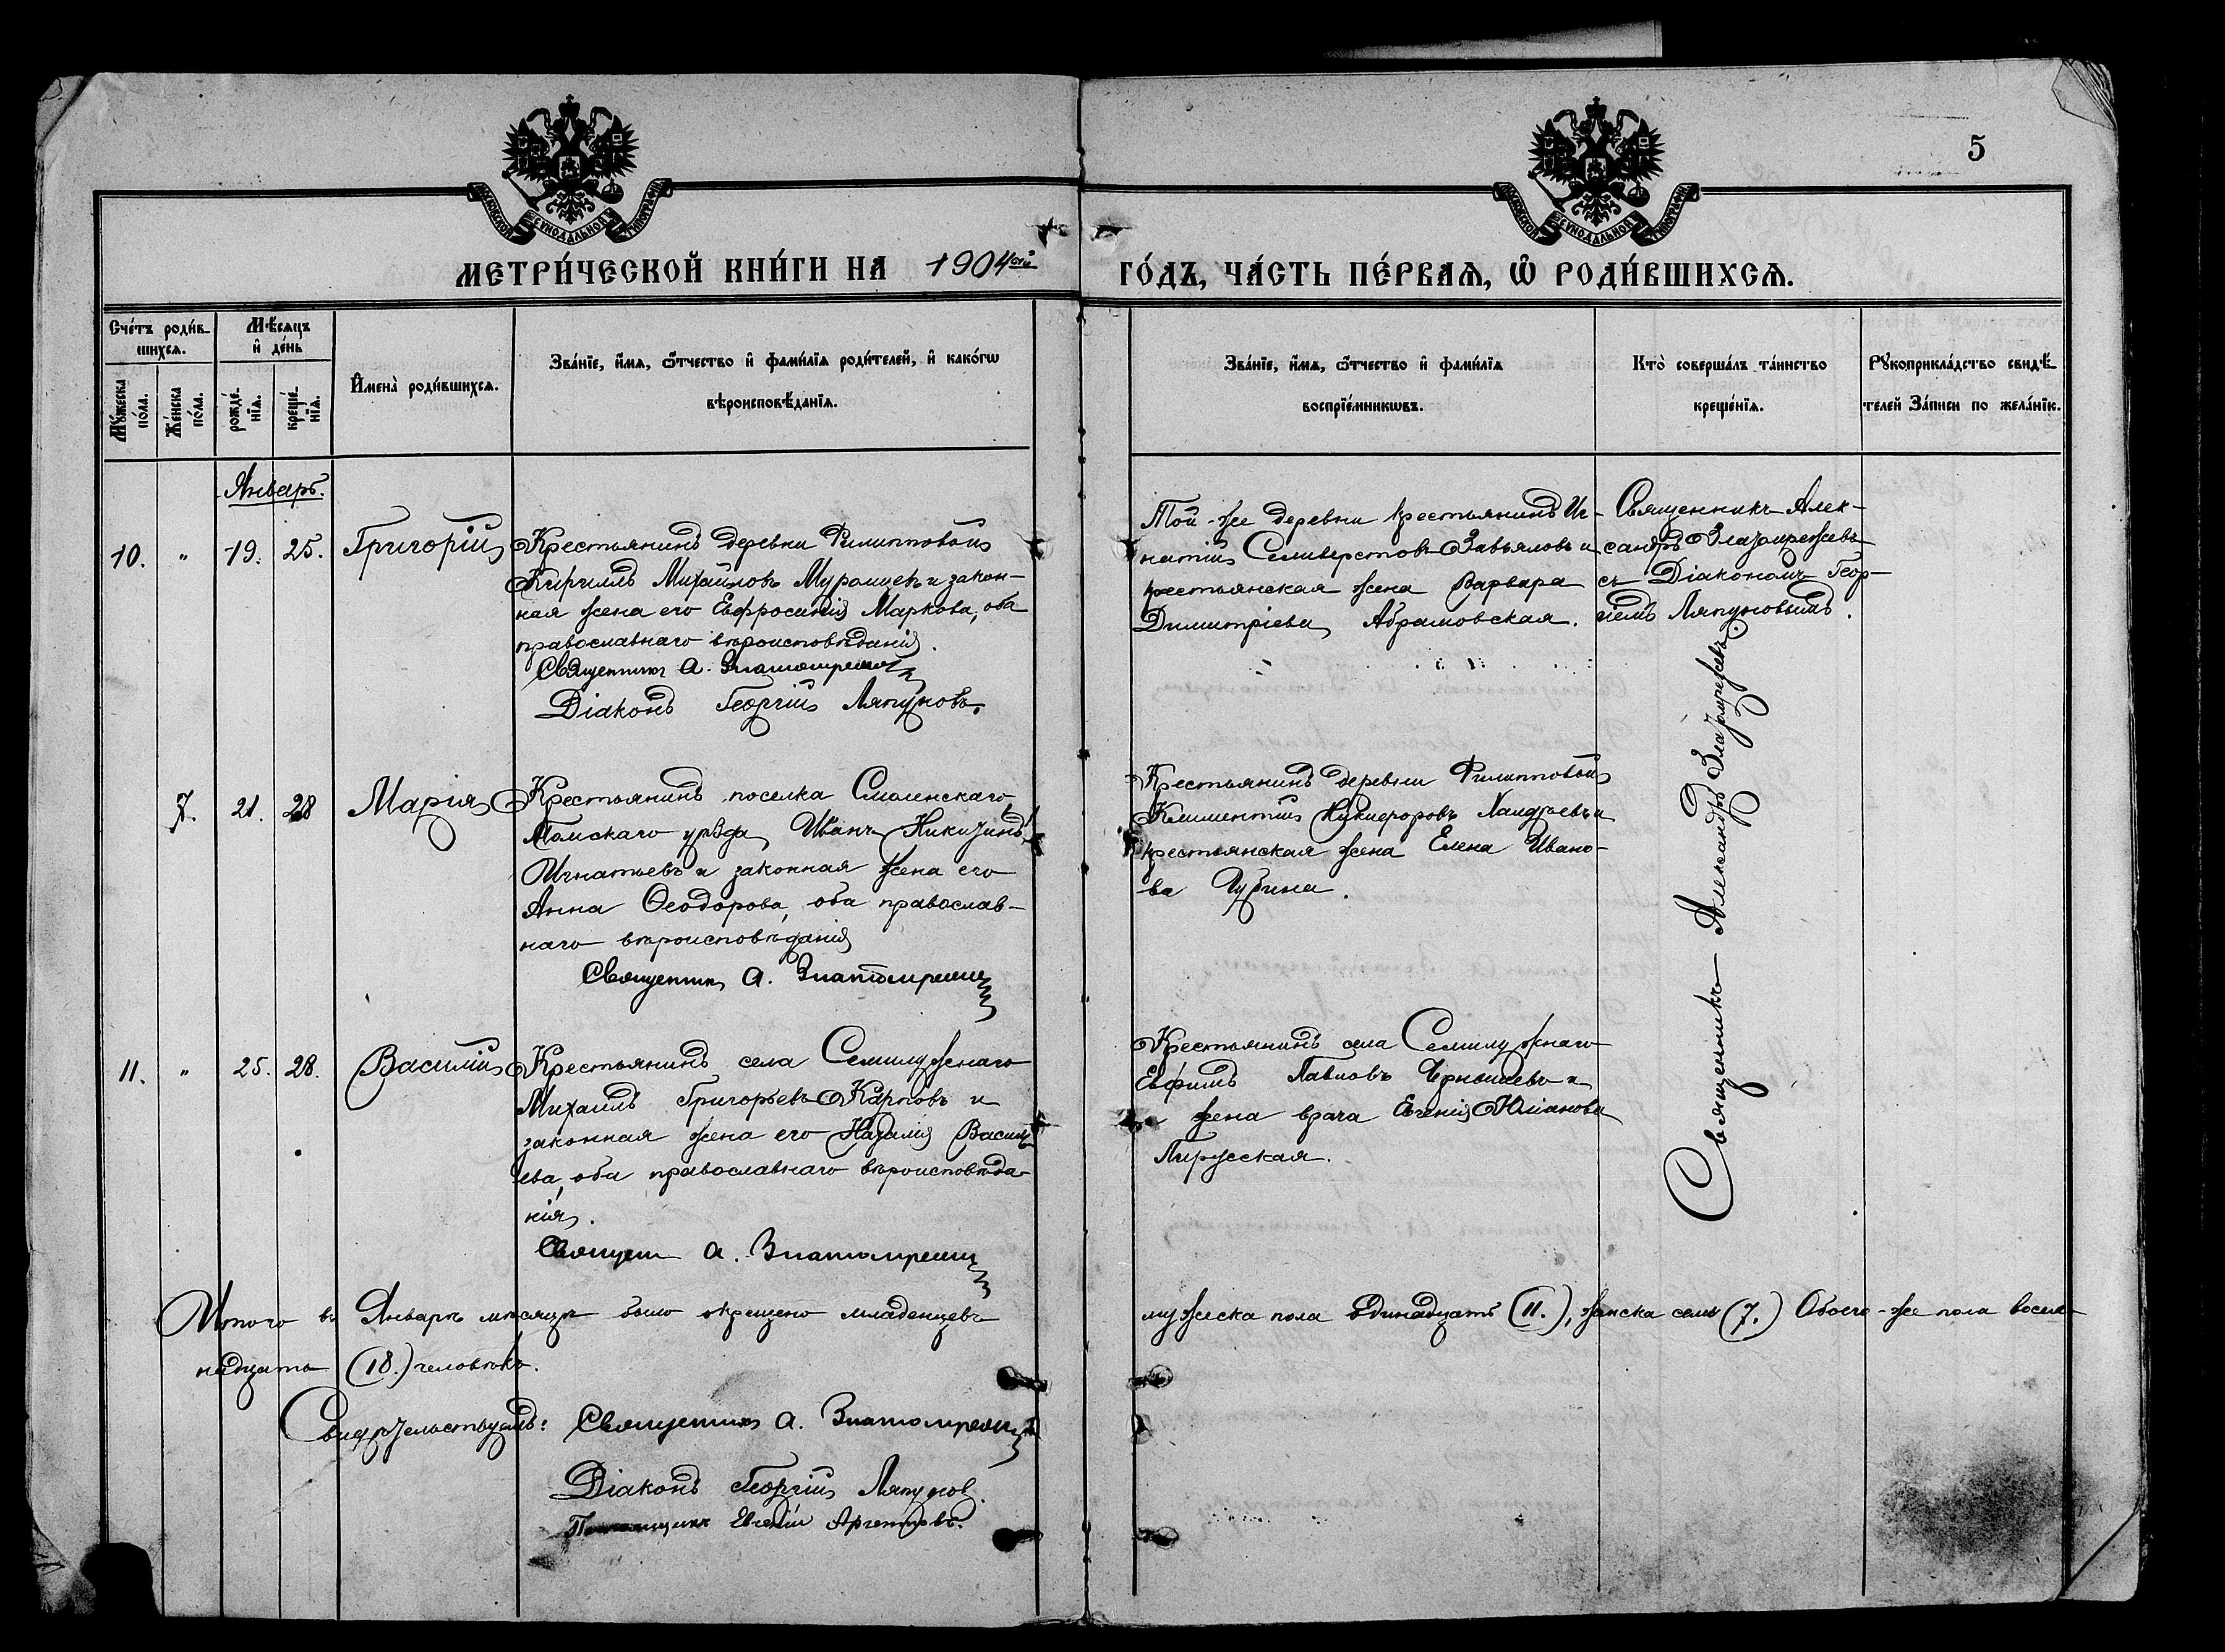 5
МОСКОВСКОЙ СѴНОДАЛЬНОЙ ТИПОГРАФІИ
МОСКОВСКОЙ СѴНОДАЛЬНОЙ ТИПОГРАФІИ
МЕТРИ́ЧЕСКОЙ КНИ́ГИ НА 1904ый ГО́ДЪ, ЧА́СТЬ ПЕ́РВАѦ, Ѡ҆ РОДИ́ВШИХСѦ.
Сче́тъ роди́в-
шихсѧ.
Мꙋ́жеска по́ла.
Же́нска по́ла.
Мѣ́сѧцъ
и҆ де́нь
рожде́-
нїѧ.
креще́-
нїѧ.
И҆мена̀ роди́вшихсѧ.
Зва́нїе, и҆́мѧ, ѻ҆́тчество и҆ фами́лїѧ роди́телей, и҆ како́гѡ
вѣроисповѣ́данїѧ.
Зва́нїе, и҆́мѧ, ѻ҆́тчество и҆ фами́лїѧ
воспрїе́мникѡвъ.
Кто̀ соверша́лъ та́инство
креще́нїѧ.
Рꙋкоприкла́дство свидѣ́-
телей За́писи по жела́нїю.
Январь.
10. " 19. 25. Григорій
Крестьянинъ деревни Филипповой
Кириллъ Михайловъ Муромцевъ и закон-
ная жена его Евфросинія Маркова, оба
православнаго вѣроисповѣданія.
Священникъ А.
Діаконъ Георгій Ляпуновъ.
Той-же деревни крестьянинъ Иг-
натій Селиверстовъ Завьяловъ и
крестьянская жена Варвара
Димитріева Абрамовская.
Священникъ Алек-
сандръ Златомрежевъ
съ Діакономъ Геор-
гіемъ Ляпуновымъ.
7. 21. 28 Марія
Крестьянинъ поселка Смоленскаго,
Томскаго уѣзда, Иванъ Никитинъ
Игнатьевъ и законная жена его
Анна Ѳеодорова, оба православ-
наго вѣроисповѣданія
Священникъ А.
Крестьянинъ деревни Филипповой
Климентій Никифоровъ и
крестьянская жена Елена Ивано-
ва Губина.
11. " 25. 28. Василій
Крестьянинъ села Семилужнаго
Михаилъ Григорьевъ Карповъ и
законная жена его Наталія Василь-
ева, оба православнаго вѣроисповѣда-
нія.
А.
Крестьянинъ села Семилужнаго
Евфимъ Павловъ Чернышевъ и
жена врача Евгенія Юліанова
Пирусская.
Священникъ Александръ Златомрежевъ.
Итого въ Январѣ мѣсяцѣ было окрещено младенцевъ мужеска пола одинадцать (11.), женска семь (7.) Обоего-же пола восем-
надцать (18.) человѣкъ.
Свидѣтельствуемъ: Священникъ А.
Діаконъ Георгій Ляпунов.
Евгеній Аргентовъ.